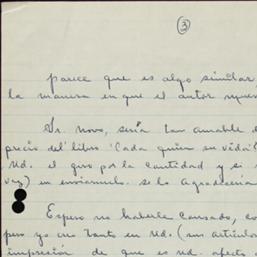 3
parece que es algo similar
la manera en que el autor
Sr. Novo, sería tan amable
precio del libro "Cada quien su vida"
Ud. el giro por la cantidad y si
vez) en enviarmelo se lo agradecería
Espero no haberle cansado, co
pero yo creo tanto en Ud. (sus articulos
impresión de que es ud. afecto a